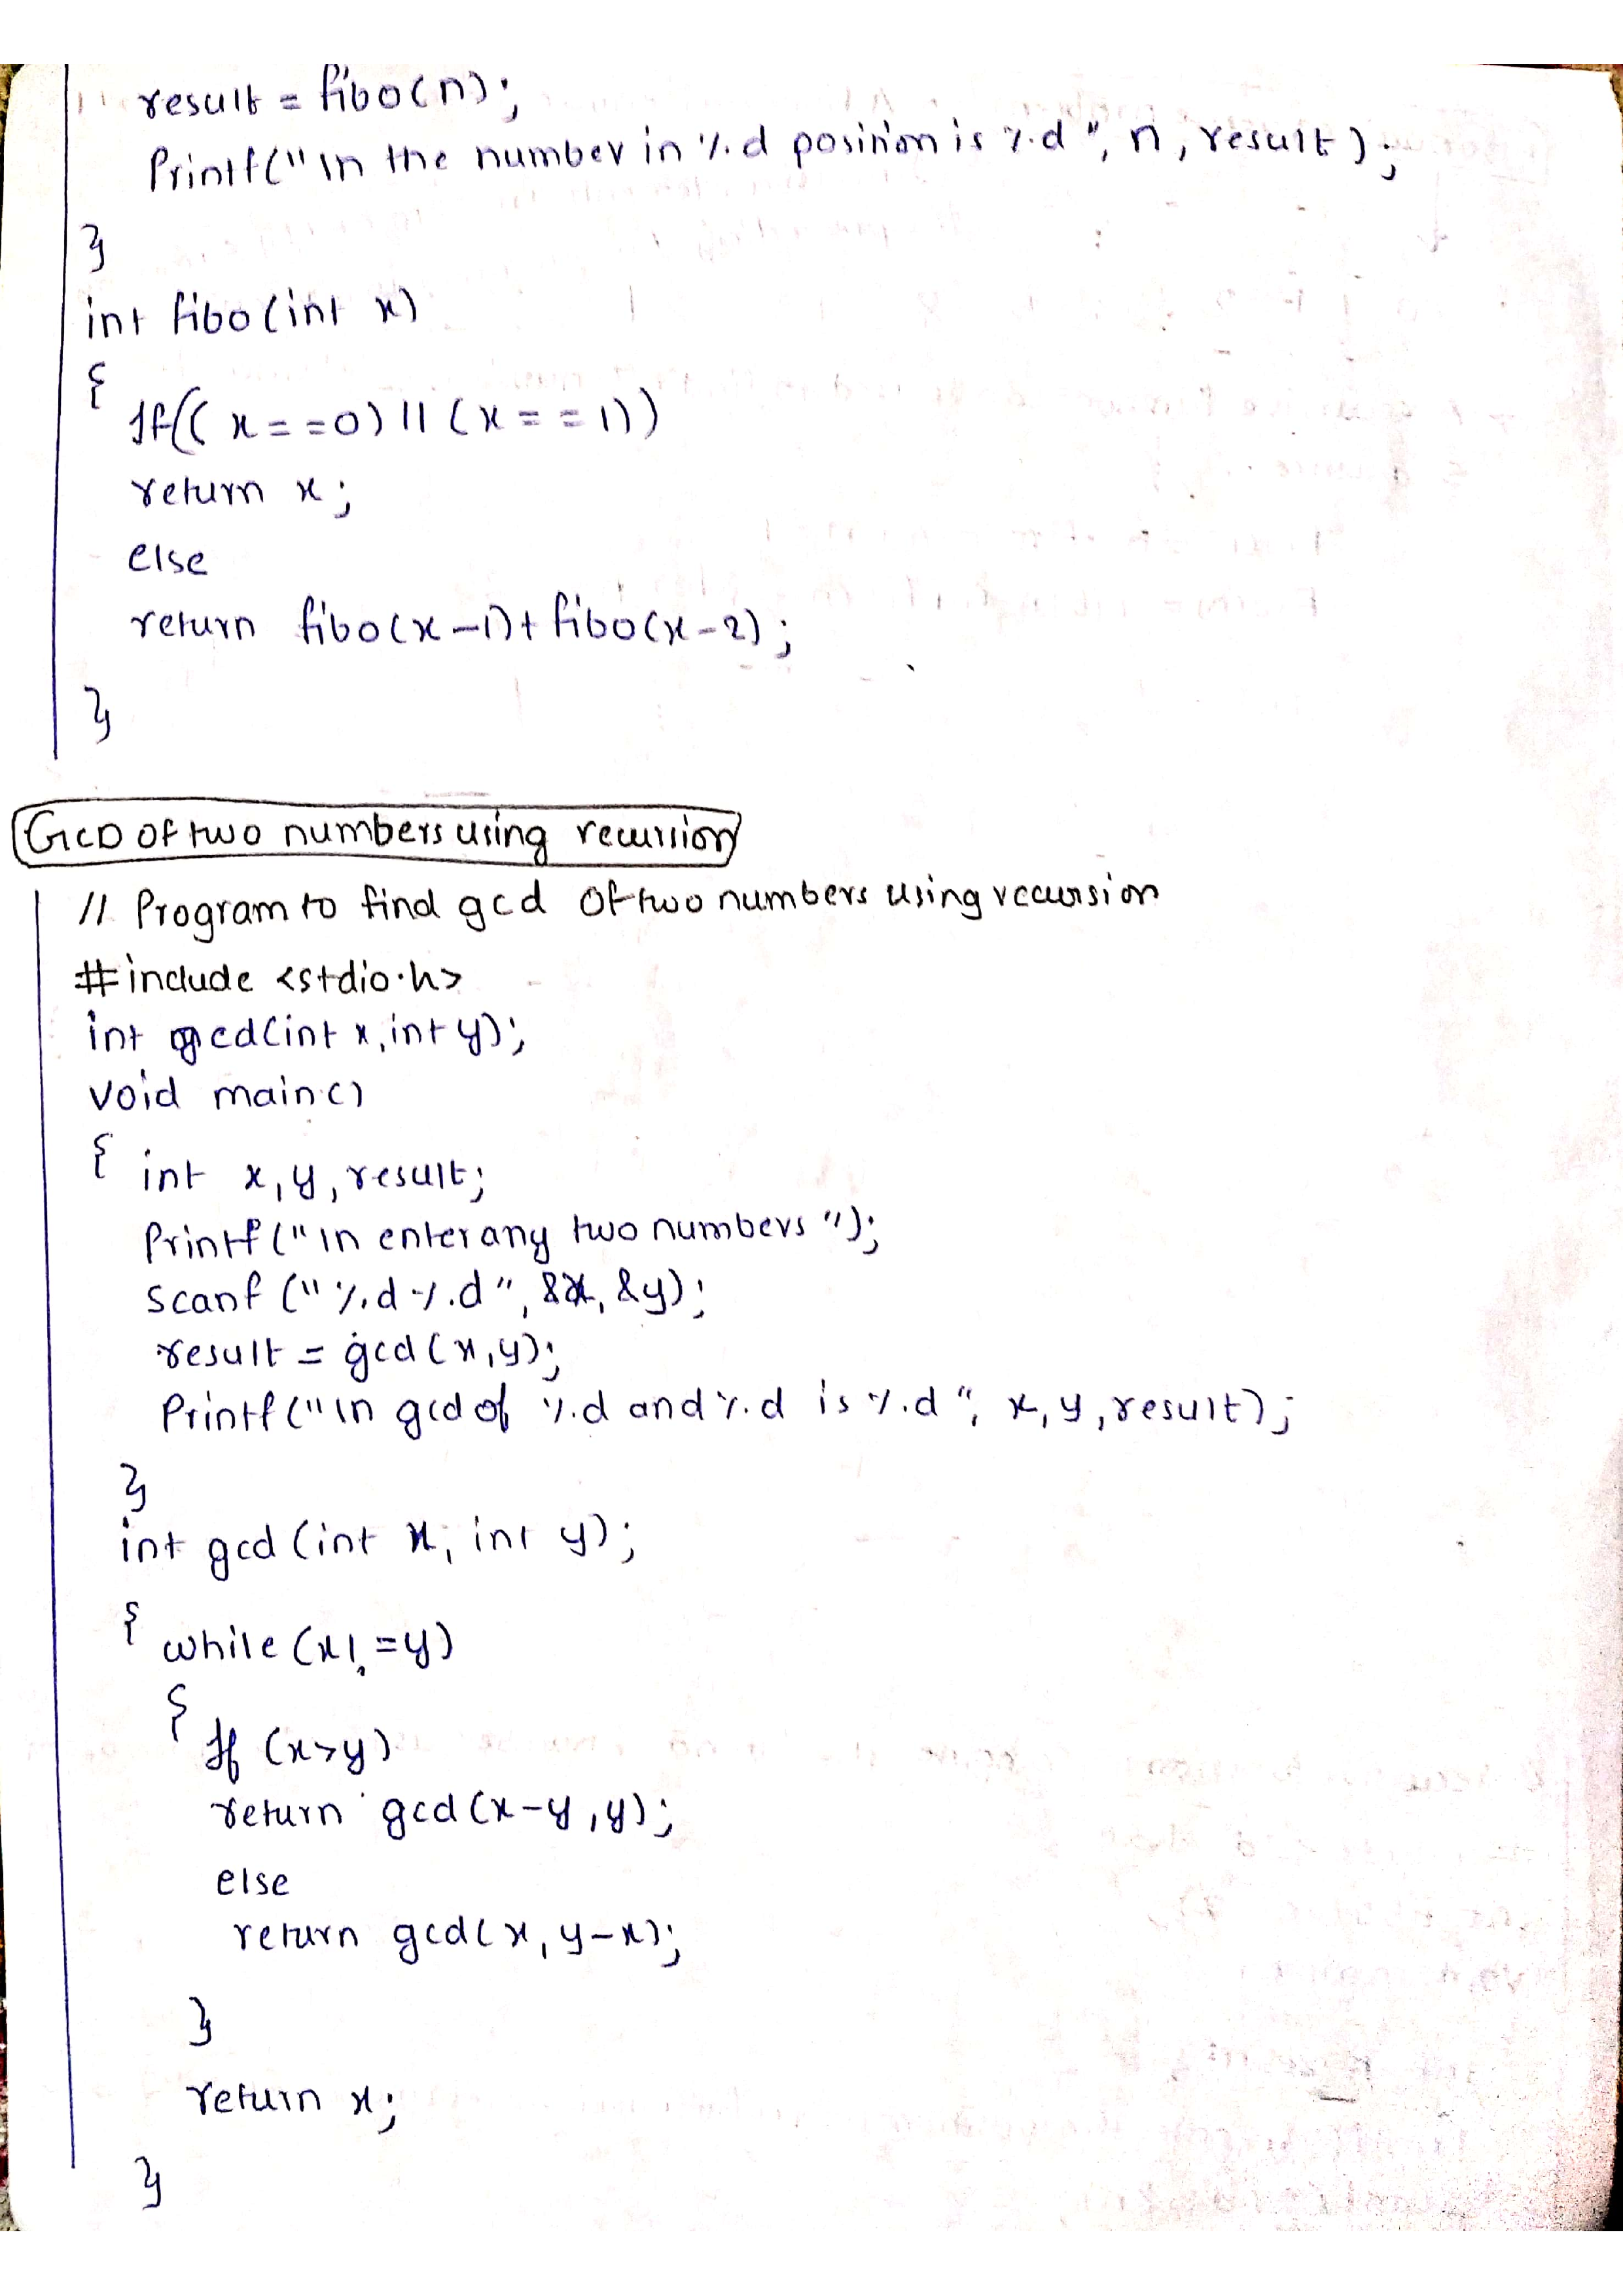 result = fibo(n);
Printf("\n the number in %d position is %d", n, result);
}
int fibo(int x)
{
If((x==0)||(x==1))
return x;
else
return fibo(x-1)+fibo(x-2);
}
GCD Of two numbers using recursion
// Program to find gcd Of two numbers using recursion
#include <stdio.h>
int gcd(int x,int y);
void main()
{ int x,y,result;
Printf("\n enter any two numbers");
scanf("%d%d",&x,&y);
result = gcd(x,y);
Printf("\n gcd of %d and %d is %d", x,y,result);
}
int gcd(int x, int y);
{ while(x!=y)
{ If (x>y)
return gcd(x-y,y);
else
return gcd(x,y-x);
}
return x;
}